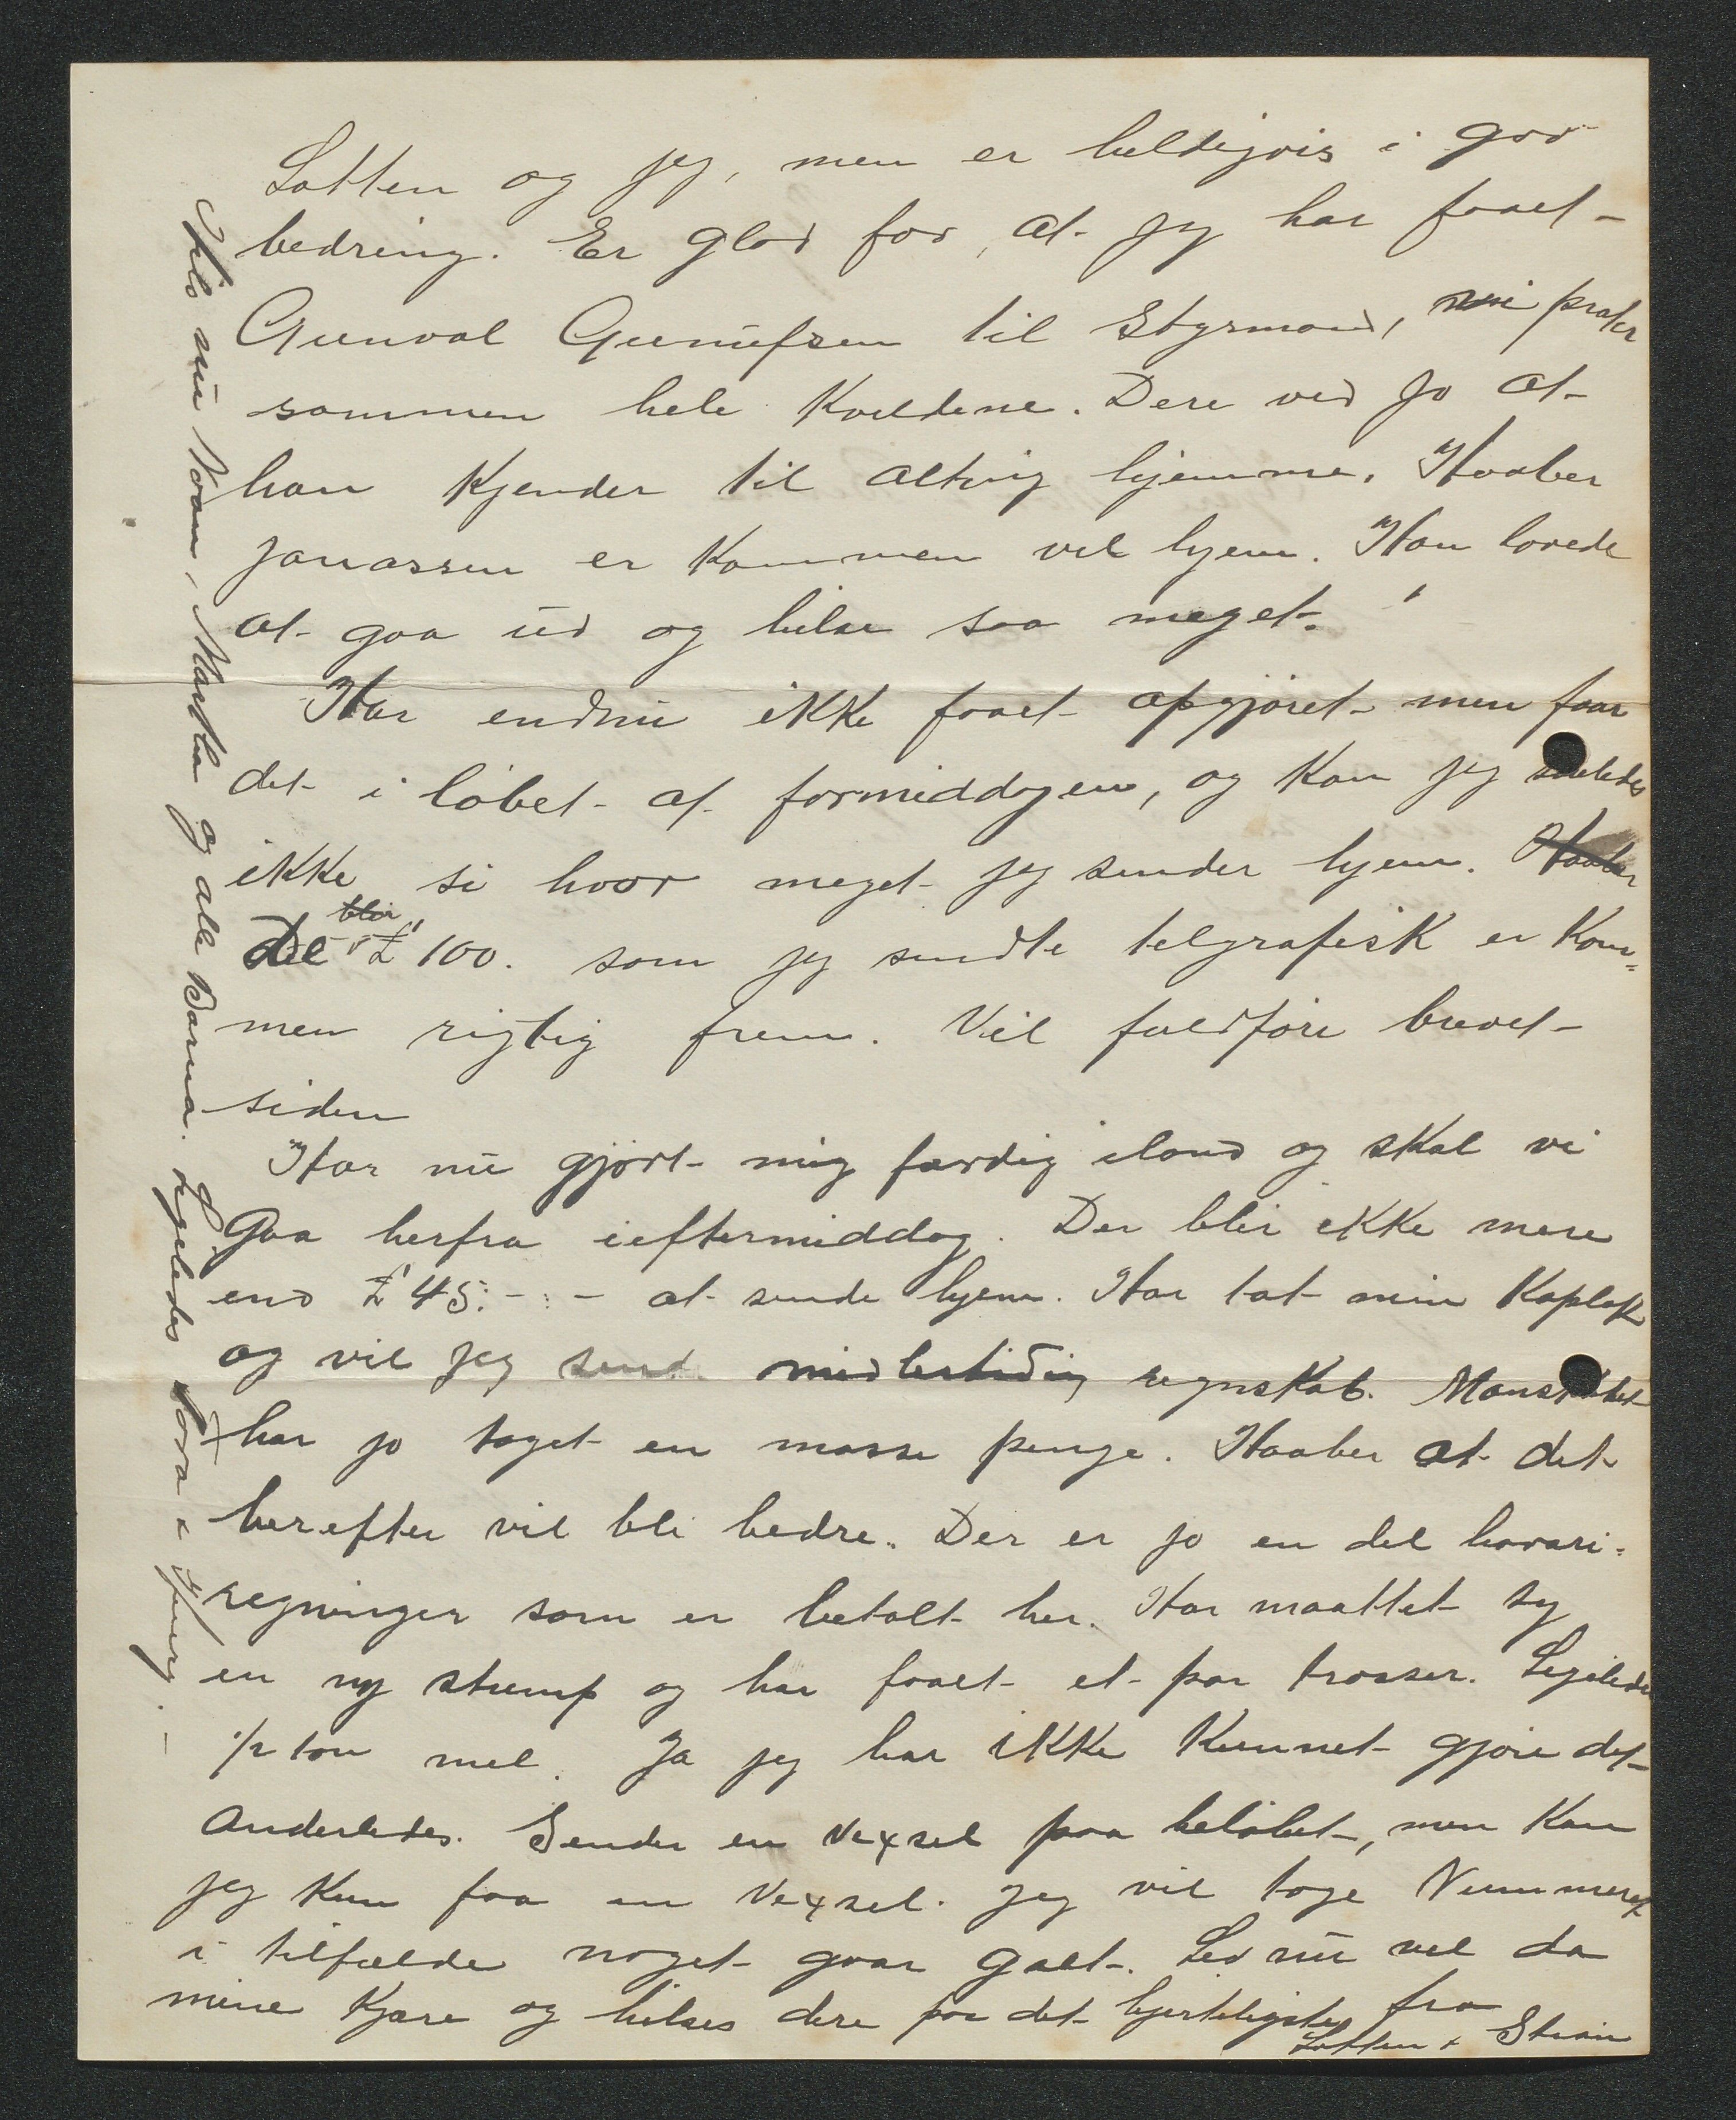 Lotten og jeg, men er heldigvis i god
bedring. Er glad for, at jeg har faaet
Gunval Gunufsen til Styrmand, vi prater
sammen hele Kveldene. Dere ved jo at
han Kjender til alting hjemme. Haaber
Jonassen er Kommen vel hjem. Han lovede
at gaa ud og hilse saa meget.
Har endnu ikke faaet opgjöret men faar
det i löbet af formiddagen, og Kan jeg saaledes
ikke si hvor meget jeg sender hjem. Haaber
De £ 100. som jeg sendte telgrafisk er Kom=
men rigtig frem. Vil fuldföre brevet
siden
Har nu gjört mig færdig iland og skal vi
gaa herfra ieftermiddag. Der blir ikke mere
end £ 45:-:- at sende hjem. Har tat min Kaplak
og vil jeg send midlertidig regnskab. Manskabet
har jo taget en masse penge. Haaber at det
herefter vil bli bedre. Der er jo en del havari=
regninger som er betalt her. Har maattet sy
en ny stump og har faaet et par trosser. Ligeledes
1/2 ton mel. Ja jeg har ikke Kunnet gjöre det
anderledes. Sender en Vexsel paa belöbet, men Kan
jeg Kun faa en Vexsel. Jeg vil tage Nummeret
i tilfælde noget gaar galt. Lev nu vel da
mine Kjære og hilses dere paa det hjerteligste fra
Lotten & Stian
Hils nu Mor, Martha og alle Barna. Ligeledes Nora &